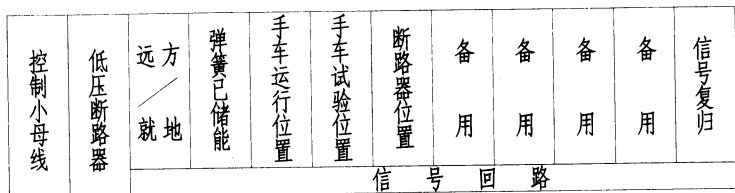 控制小母线
低压断路器
远方/就地
弹簧已储能
手车运行位置
手车试验位置
断路器位置
备用
备用
备用
备用
信号复归
信号回路